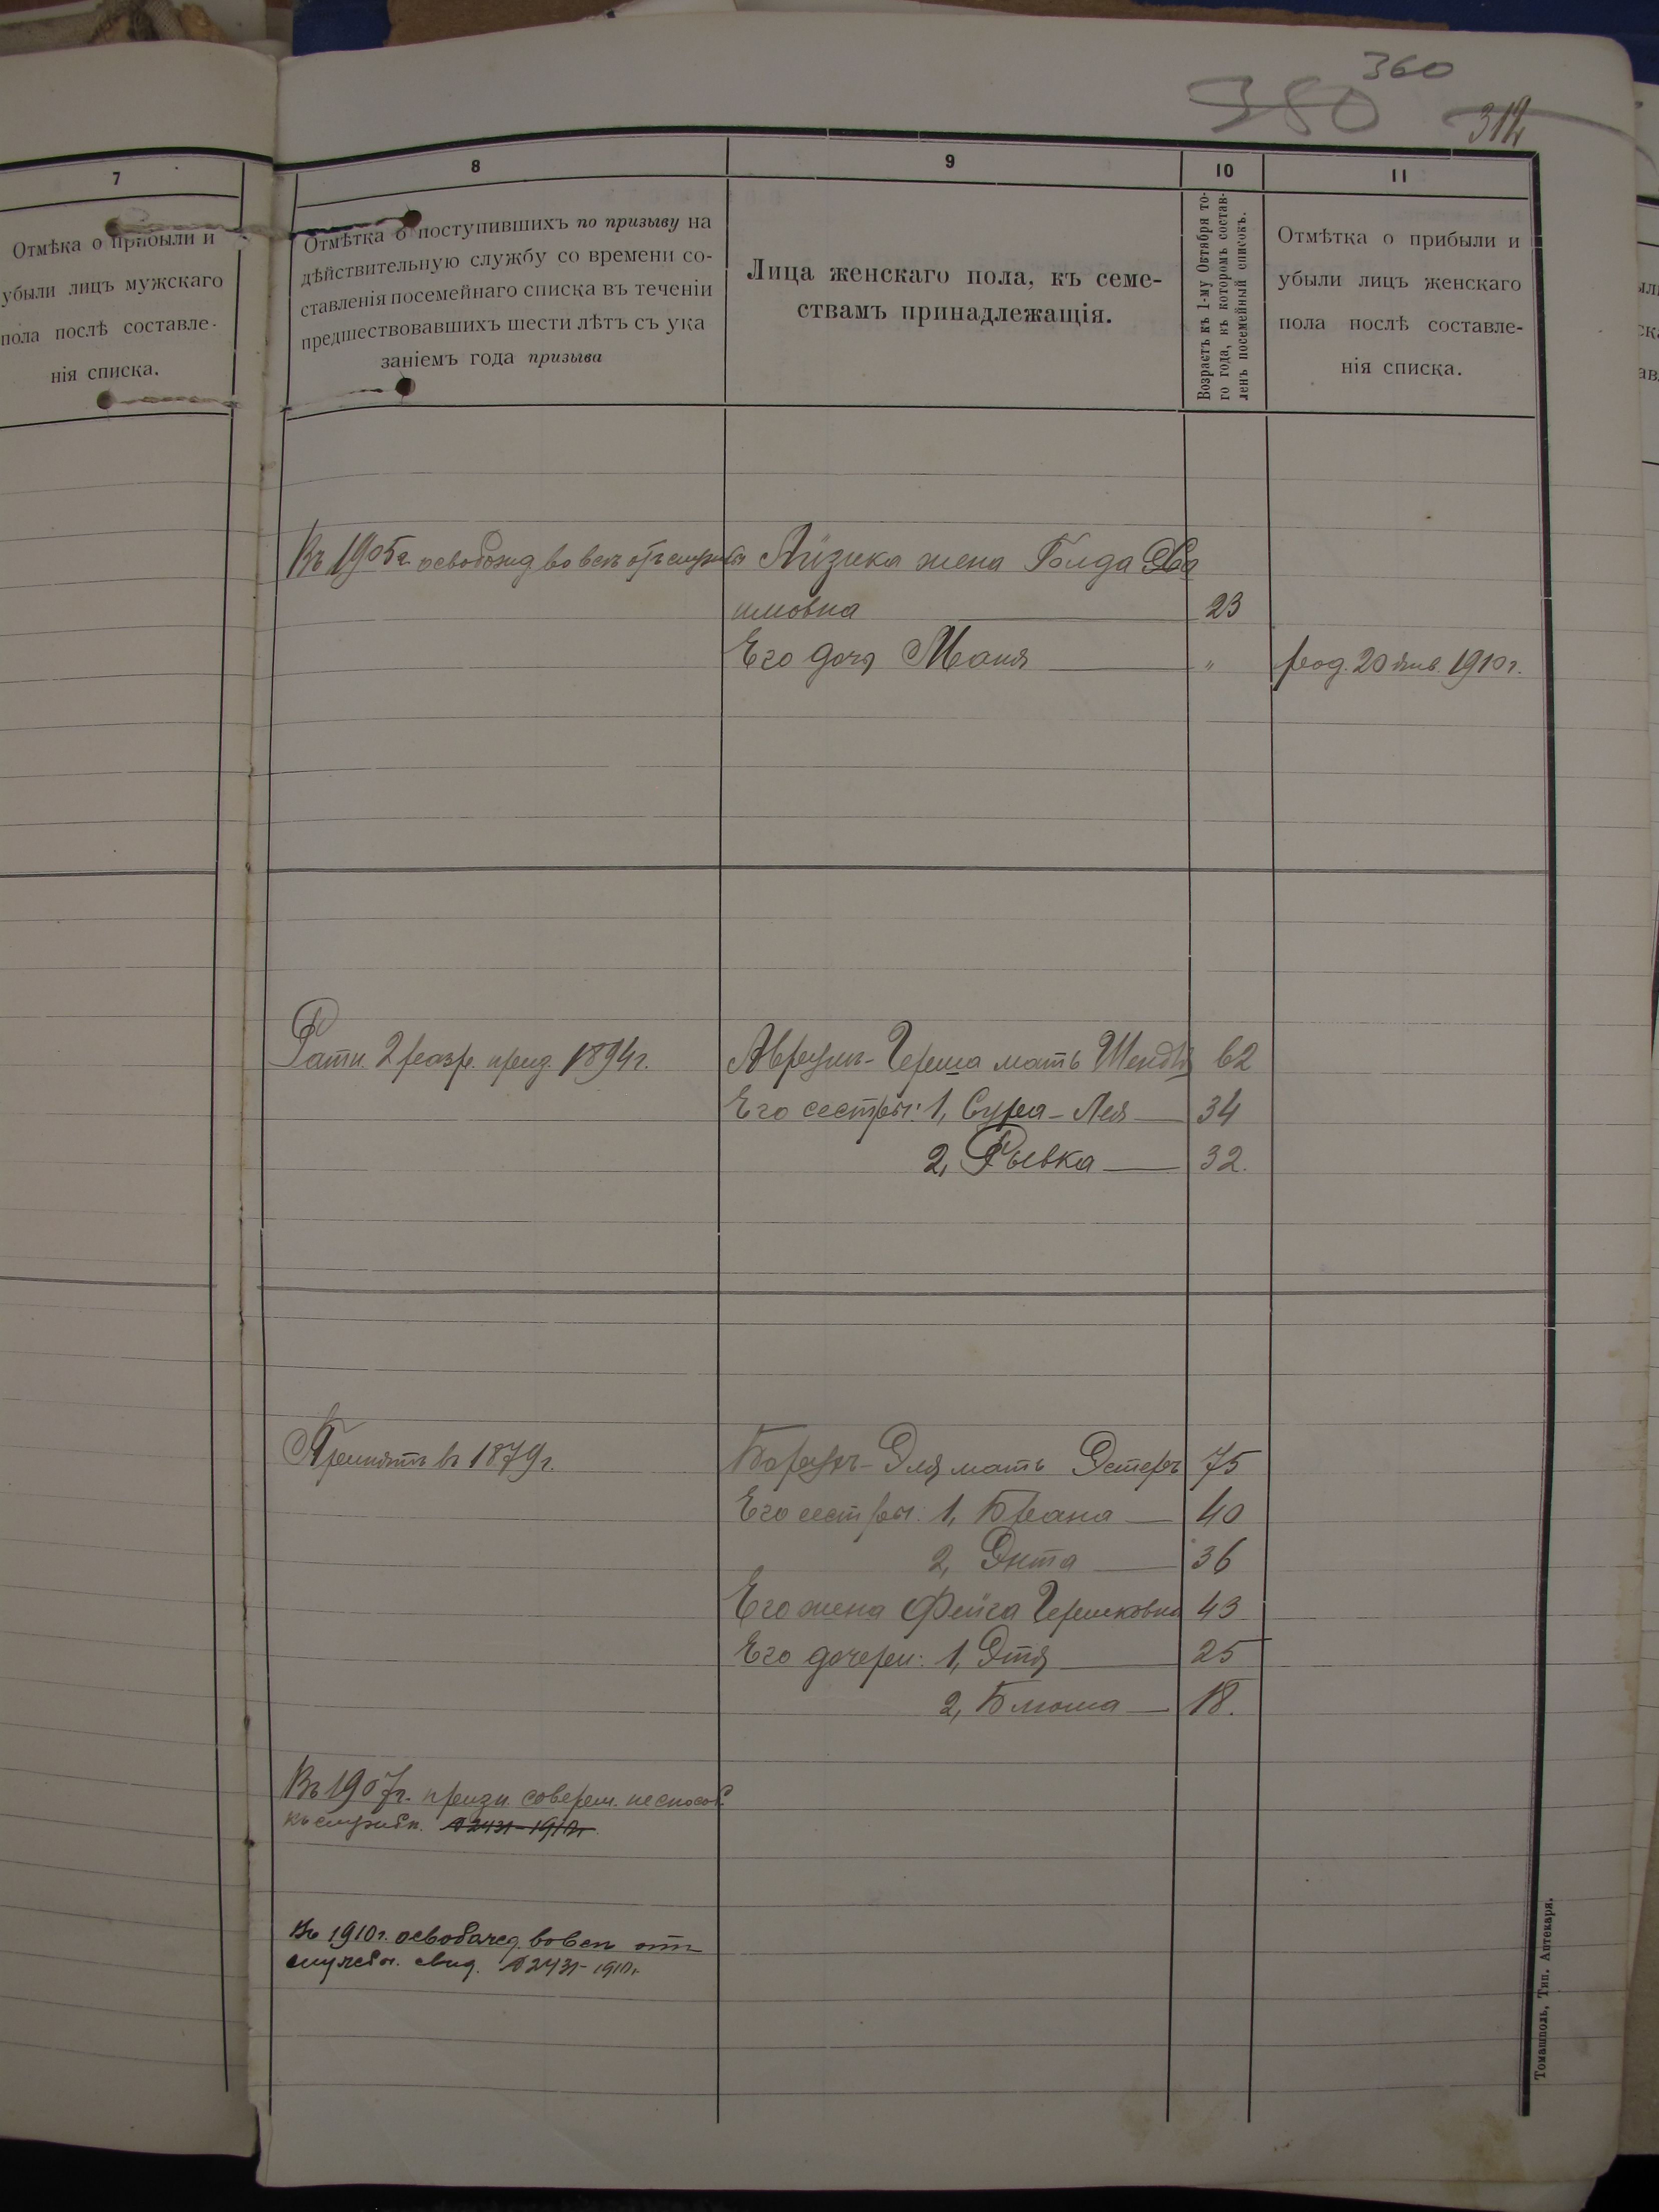 360
380
312
7
8
9
10
11
Отмѣка о прибыли и
убыли лицъ мужскаго
пола послѣ составле-
нія списка.
Отмѣтка о поступившихъ по призыву на
дѣйствительную службу со времени со-
ставленія посемейнаго списка въ теченіи
предшествовавшихъ шести лѣтъ съ ука
заніемъ года призыва
Лица женскаго пола, къ семе-
ствамъ принадлежащія.
Возрастъ къ 1-му Октября то-
го года, къ которомъ состав-
ленъ посемейный списокъ.
Отмѣтка о прибыли и
убыли лицъ женскаго
пола послѣ составле-
нія списка.
Въ 1905г. освобожд вовсе отъ службы
Айзика жена Голда Хаа
имовна 23
Его дочь Маня " род. 20 янв. 1910г.
Ратн. 2 разр. приз. 1894г.
Аврумъ-Герша мать Шендля 62
Его сестры: 1, Сура-Лея 34
2, Рывка 32.
Принятъ въ 1879г.
Борухъ-Эля мать Эстеръ 75
Его сестры: 1, Брана 40
2, Энта 36
Его жена Фейга Гершковна 43
Его дочери: 1, Этя 25
2, Блюма 18.
Въ 1907г. призн. соверш. неспособ.
къ службѣ. №2431-1910г.
Въ 1910г. освобожд. вовсе отъ
службы. свид. №2431-1910г.
Томашполь, Тип. Аптекаря.